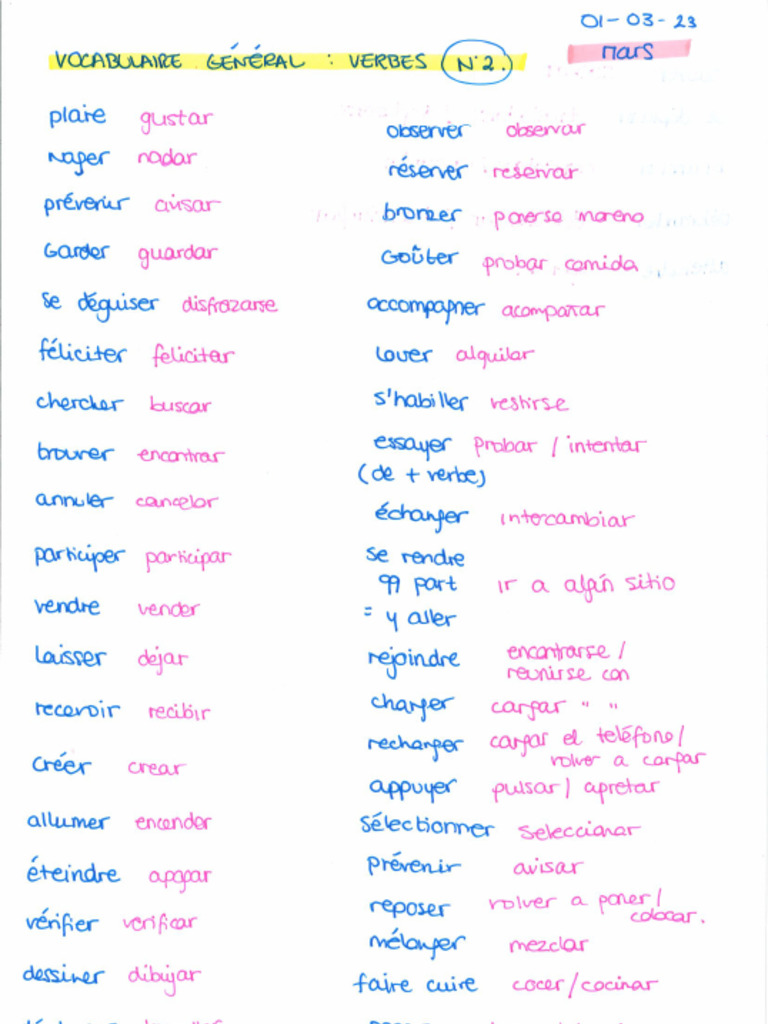 01-03-23
mars
VOCABULAIRE GÉNÉRAL : VERBES (N°2.)
plaire gustar
nager nadar
prévenir avisar
Garder guardar
se déguiser disfrazarse
féliciter felicitar
chercher buscar
trouver encontrar
annuler cancelar
participer participar
vendre vender
laisser dejar
recevoir recibir
créer crear
allumer encender
éteindre apagar
vérifier verificar
dessiner dibujar
observer observar
réserver reservar
bronzer ponerse moreno
Goûter probar comida
accompagner acompañar
louer alquilar
s'habiller vestirse
essayer probar / intentar
(de + verbe)
échanger intercambiar
se rendre
qq part ir a algún sitio
= y aller
rejoindre encontrarse /
reunirse con
charger cargar " "
recharger cargar el teléfono /
volver a cargar
appuyer pulsar / apretar
sélectionner seleccionar
prévenir avisar
reposer volver a poner /
colocar.
mélanger mezclar
faire cuire cocer / cocinar